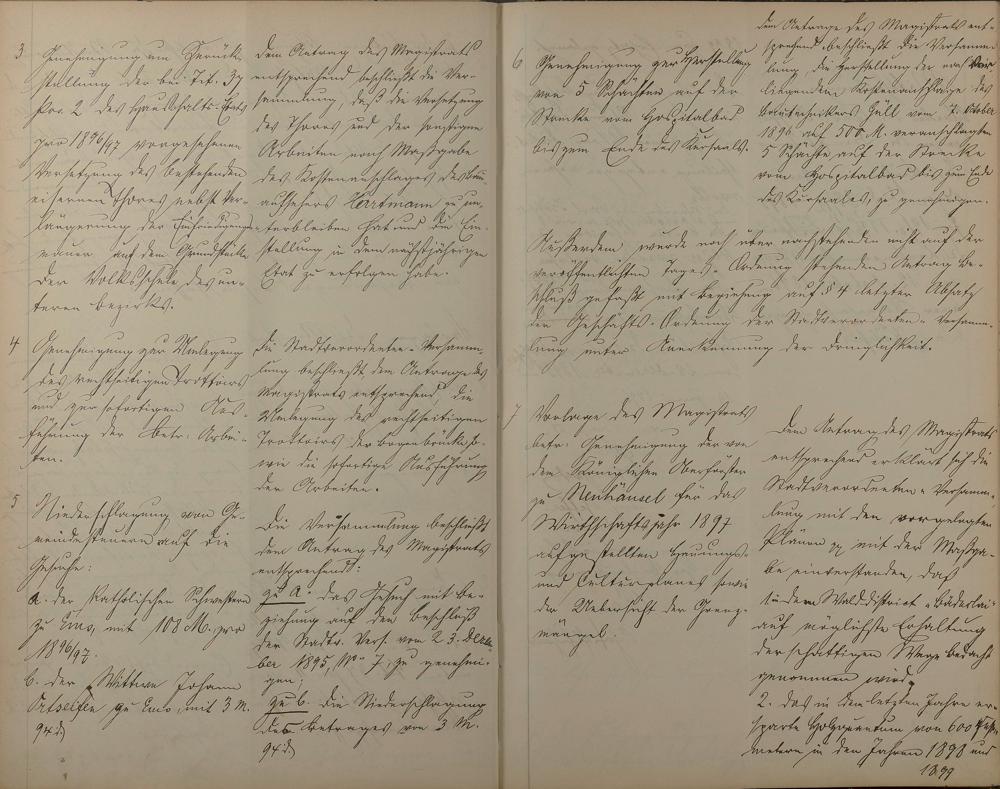 3
Genehmigung um Zurück-
stellung der bei Tit. 37
Pos. 2 des Haushalts-Etats
pro 1896/97 vorgesehenen
Versetzung des bestehenden
eisernen Thores nebst Ver-
längerung der Einfriedigungs-
mauer auf dem Grundstücke
der Volksschule des un-
teren Bezirks.
Dem Antrag des Magistrats
entsprechend beschließt die Ver-
sammlung, daß die Versetzung
des Thores und der sonstigen
Arbeiten nach Maßgabe
des Kostenanschlages des Bau-
aufsehers Hartmann zu un-
terbleiben hat und die Ein-
stellung in dem nächstjährigen
Etat zu erfolgen habe.
4
Genehmigung zur Umlegung
des rechtseitigen Trottoirs
und zur sofortigen Aus-
führung der betr. Arbei-
ten.
Die Stadtverordneten-Versamm-
lung beschließt, dem Antrage des
Magistrats entsprechend, die
Umlegung des rechtseitigen
Trottoirs der Bogenbrücke so-
wie die sofortige Ausführung
der Arbeiten.
5
Niederschlagung von Ge-
meindesteuern auf die
Gesuche:
a. der Katholischen Schwestern
zu Ems, mit 108 M. pro
1896/97.
b. der Wittwe Johann
zu Ems, mit 3 M.
94 d
Die Versammlung beschließt
dem Antrag des Magistrats
entsprechend:
zu a. das Gesuch mit Be-
ziehung auf den Beschluß
der Stadtv. Vers. vom 23. Dezem-
ber 1895, No 7, zu genehmi-
gen;
zu b. die Niederschlagung
des Betrages von 3 M.
94 d
6
Genehmigung zur Herstellung
von 5 Schächten auf der
Strecke vom Hospitalbad
bis zum Ende des Kursaals.
Dem Antrage des Magistrats ent-
sprechend beschließt die Versamm-
lung, die Herstellung der nach vor-
liegendem Kostenanschlage des
Bautechnikers Güll vom 7. October
1896 auf 500 M. veranschlagten
5 Schächte auf der Strecke
vom Hospitalbad bis zum Ende
des Kursaales, zu genehmigen.
Außerdem wurde noch über nachstehenden nicht auf der
veröffentlichten Tages-Ordnung stehenden Antrag Be-
schluß gefaßt mit Beziehung auf § 4 letzter Absatz
der Geschäfts-Ordnung der Stadtverordneten-Versamm-
lung unter Anerkennung der Dringlichkeit.
7
Vorlage des Magistrats
betr. Genehmigung der von
dem Königlichen Oberförster
zu Neuhäusel für das
Wirthschaftsjahr 1897
aufgestellten Hauungs-
und Culturplanes sowie
der Uebersicht der Grenz-
mängel.
Dem Antrag des Magistrats
entsprechend erklärt sich die
Stadtverordneten-Versamm-
lung mit den vorgelegten
Plänen pp mit der Maßga-
be einverstanden, daß
in dem Walddistrict Bäderlei
auf möglichste Erhaltung
der schattigen Wege bedacht
genommen wird,
2. das in dem letzten Jahre er-
sparte Holzquantum von 600 Fest-
metern in den Jahren 1898 und
1899